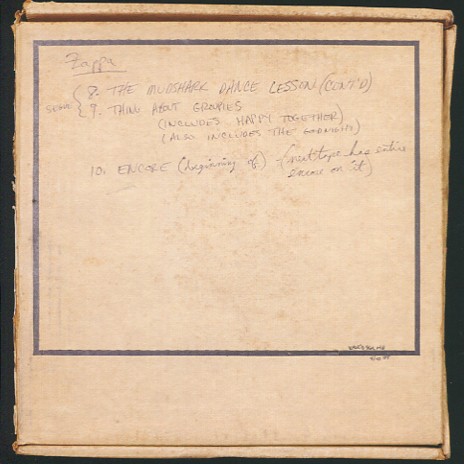 Zappa
8. THE MUDSHARK DANCE LESSON (CONT'D)
9. THING ABOUT GROUPIES
(INCLUDES HAPPY TOGETHER)
(ALSO INCLUDES THE GOODNIGHTS)
10. ENCORE (beginning of) (next tape has entire
encore on it)